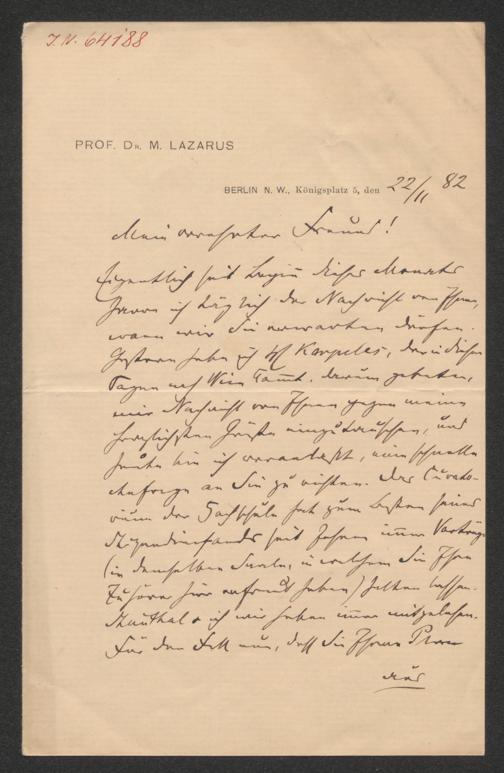 J.N. 64188
PROF. DR. M. LAZARUS
BERLIN N. W., Königsplatz 5, den 22/11 82
Mein verehrter Freund!
Eigentlich seit Beginn dieses Monats
harre ich täglich der Nachricht von Ihnen,
wann wir Sie erwarten dürfen.
Gestern habe ich Karpeles, der in diesen
Tagen nach Wien kommt, darum gebeten,
mir Nachricht von Ihnen gegen meine
herzlichsten Grüße einzutauschen, und
heute bin ich veranlaßt, eine schnelle
Anfrage an Sie zu richten. Das Curato-
rium der Hochschule hat zum Besten seines
Stipendienfonds seit Jahren immer Vorträge
(in demselben Saale, in welchem Sie Ihre
Zuhörer hier erfreut haben) halten lassen.
Steinthal u ich wir haben immer mitgelesen.
Für den Fall nun, daß Sie Ihren Plan
aus